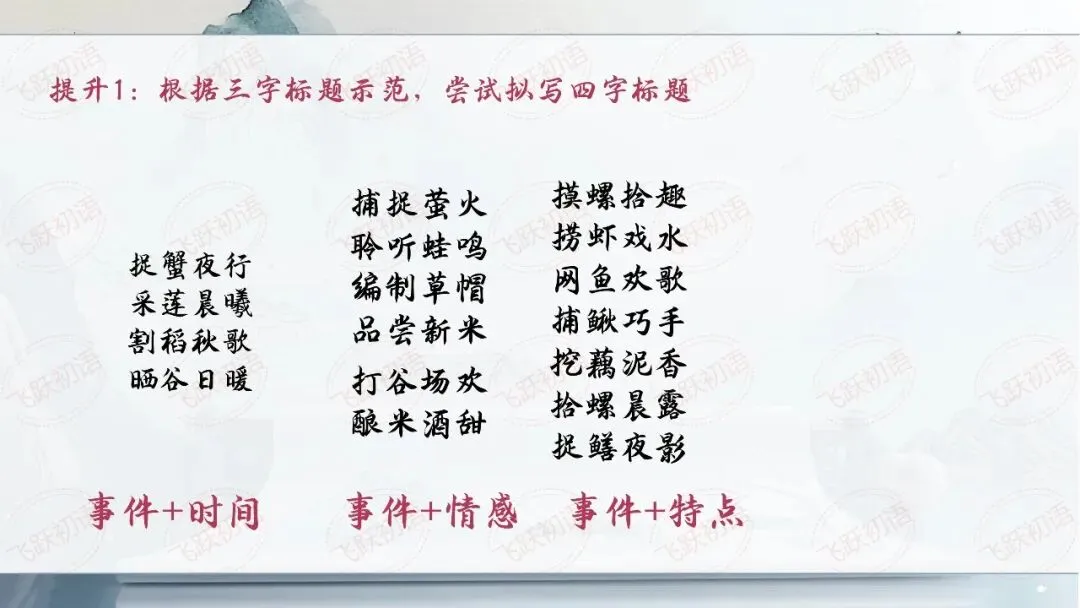 提升1：根据三字标题示范，尝试拟写四字标题
捉蟹夜行
采莲晨曦
割稻秋歌
晒谷日暖
事件+时间
捕捉萤火
聆听蛙鸣
编制草帽
品尝新米
打谷场欢
酿米酒甜
事件+情感
摸螺拾趣
捞虾戏水
网鱼欢歌
捕鳅巧手
挖藕泥香
拾螺晨露
捉鳝夜影
事件+特点
飞跃初语